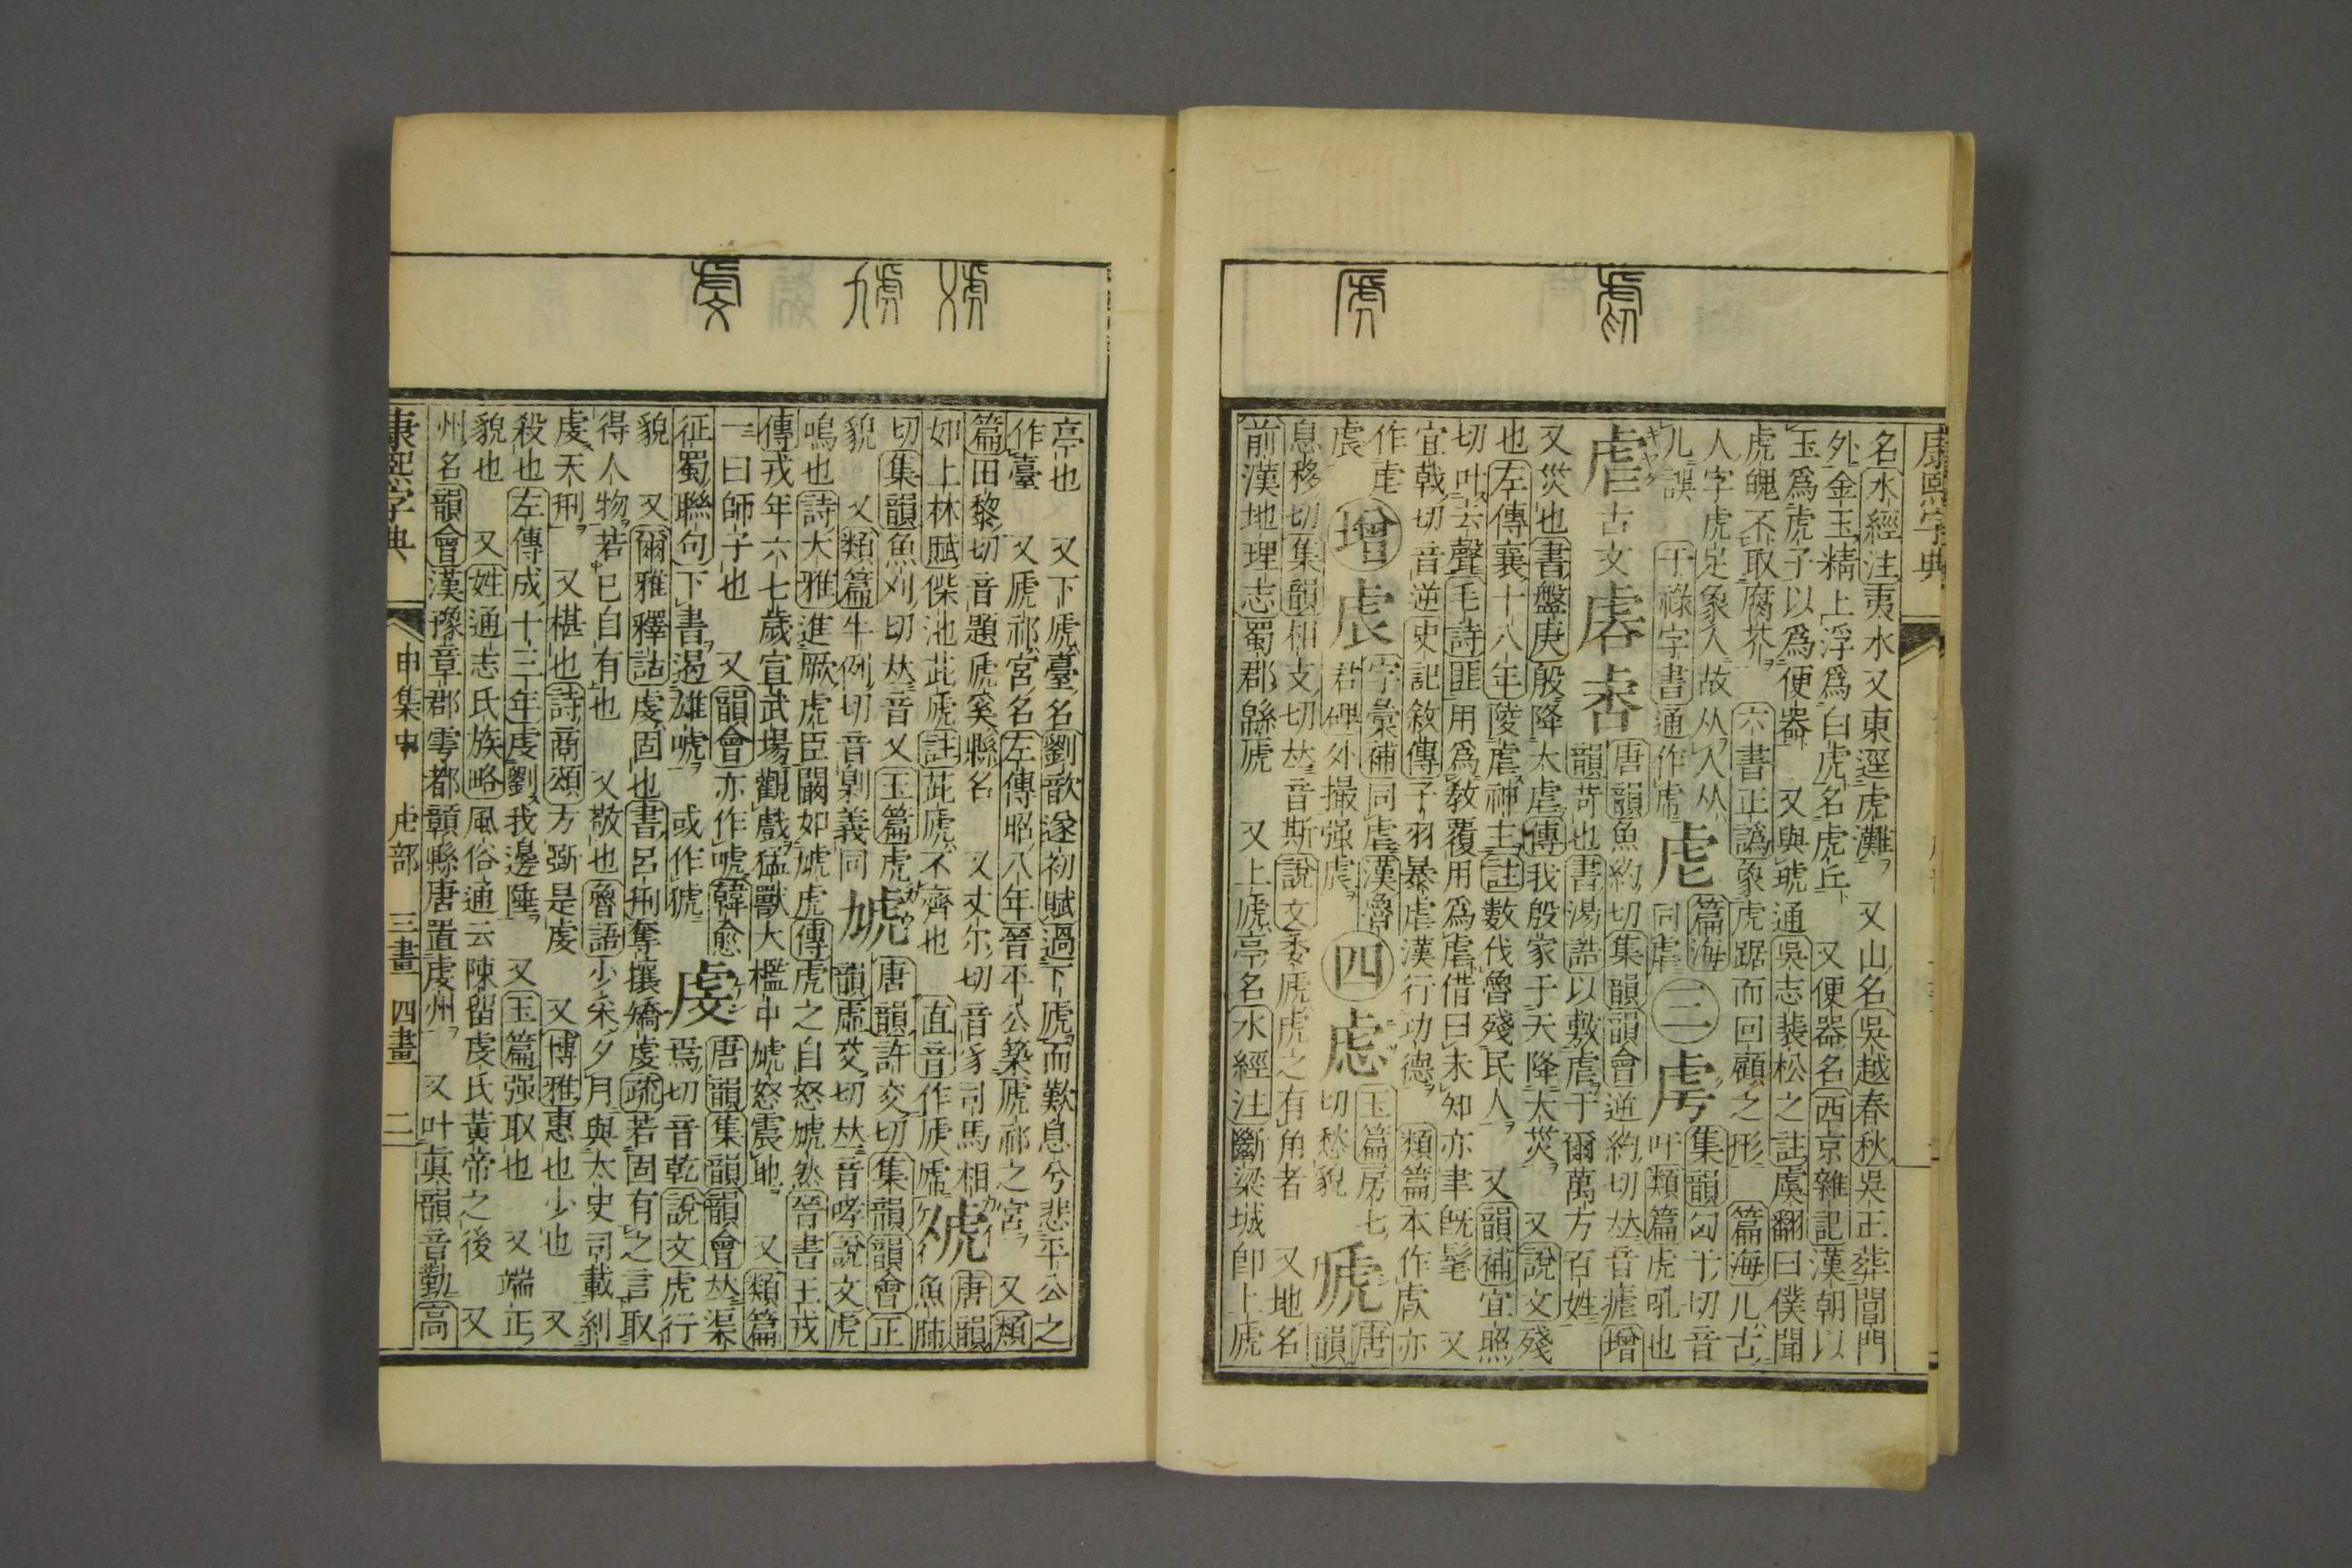 康熙字典
名水經注夷水又東逕虎灘又山名吳越春秋吳王葬閶門
外金玉精上浮爲白虎名虎丘又便器名西京雜記漢朝以
玉爲虎子以爲便器又與琥通吳志裴松之註虞翻曰僕聞
虎魄不取腐芥六書正譌象虎踞而回顧之形篇海儿古
人字虎足象人故从人从
几誤干祿字書通作虎
虍篇海同虐
三
虏集韻匈于切音
吁類篇虎吼也
虐古文𧆩𧆨唐韻魚約切集韻韻會逆約切𠀤音瘧增
韻苛也書湯誥以敷虐于爾萬方百姓
又災也書盤庚殷降大虐傳我殷家于天降大災又說文殘
也左傳襄十八年陵虐神主註數伐魯殘民人又韻補宜照
切叶去聲毛詩匪用爲教覆用爲虐借曰未知亦聿旣耄又
宜戟切音逆史記敘傳子羽暴虐漢行功德類篇本作虐亦
作𧆞
增
字彙補同虐漢魯
君碑外撮强虐
四
虑玉篇房七
切愁貌
虒唐韻
息移切集韻相支切𠀤音斯說文委虒虎之有角者又地名
前漢地理志蜀郡緜虒又上虒亭名水經注斷梁城卽上虒
亭也又下虒臺名劉歆遂初賦過下虒而歎息兮悲平公之
作臺又虒祁宮名左傳昭八年晉平公築虒祁之宮又類
篇田黎切音題虒奚縣名又丈尔切音豸司馬相
如上林賦傑池茈虒註茈虒不齊也直音作虒
唐韻
魚肺
切集韻魚刈切𠀤音乂玉篇虎
貌又類篇牛例切音劓義同
虓唐韻許交切集韻韻會正
韻虛交切𠀤音哮說文虎
鳴也詩大雅進厥虎臣闞如虓虎傳虎之自怒虓然晉書王戎
傳戎年六七歲宣武場觀戲猛獸大檻中虓怒震地又類篇
一曰師子也又韻會亦作唬韓愈
征蜀聯句下書遏雄唬或作猇
虔唐韻集韻韻會𠀤渠
焉切音乾說文虎行
貌又爾雅釋詁虔固也書呂刑奪攘矯虔疏若固有之言取
得人物若己自有也又敬也魯語少采夕月與太史司載糾
虔天刑又椹也詩商頌方斲是虔又博雅惠也少也又
殺也左傳成十三年虔劉我邊陲又玉篇强取也又端正
貌也又姓通志氏族略風俗通云陳留虔氏黃帝之後又
州名韻會漢豫章郡雩都贛縣唐置虔州又叶眞韻音勤高
康熙字典
申集中
虍部
三畫
四畫
二